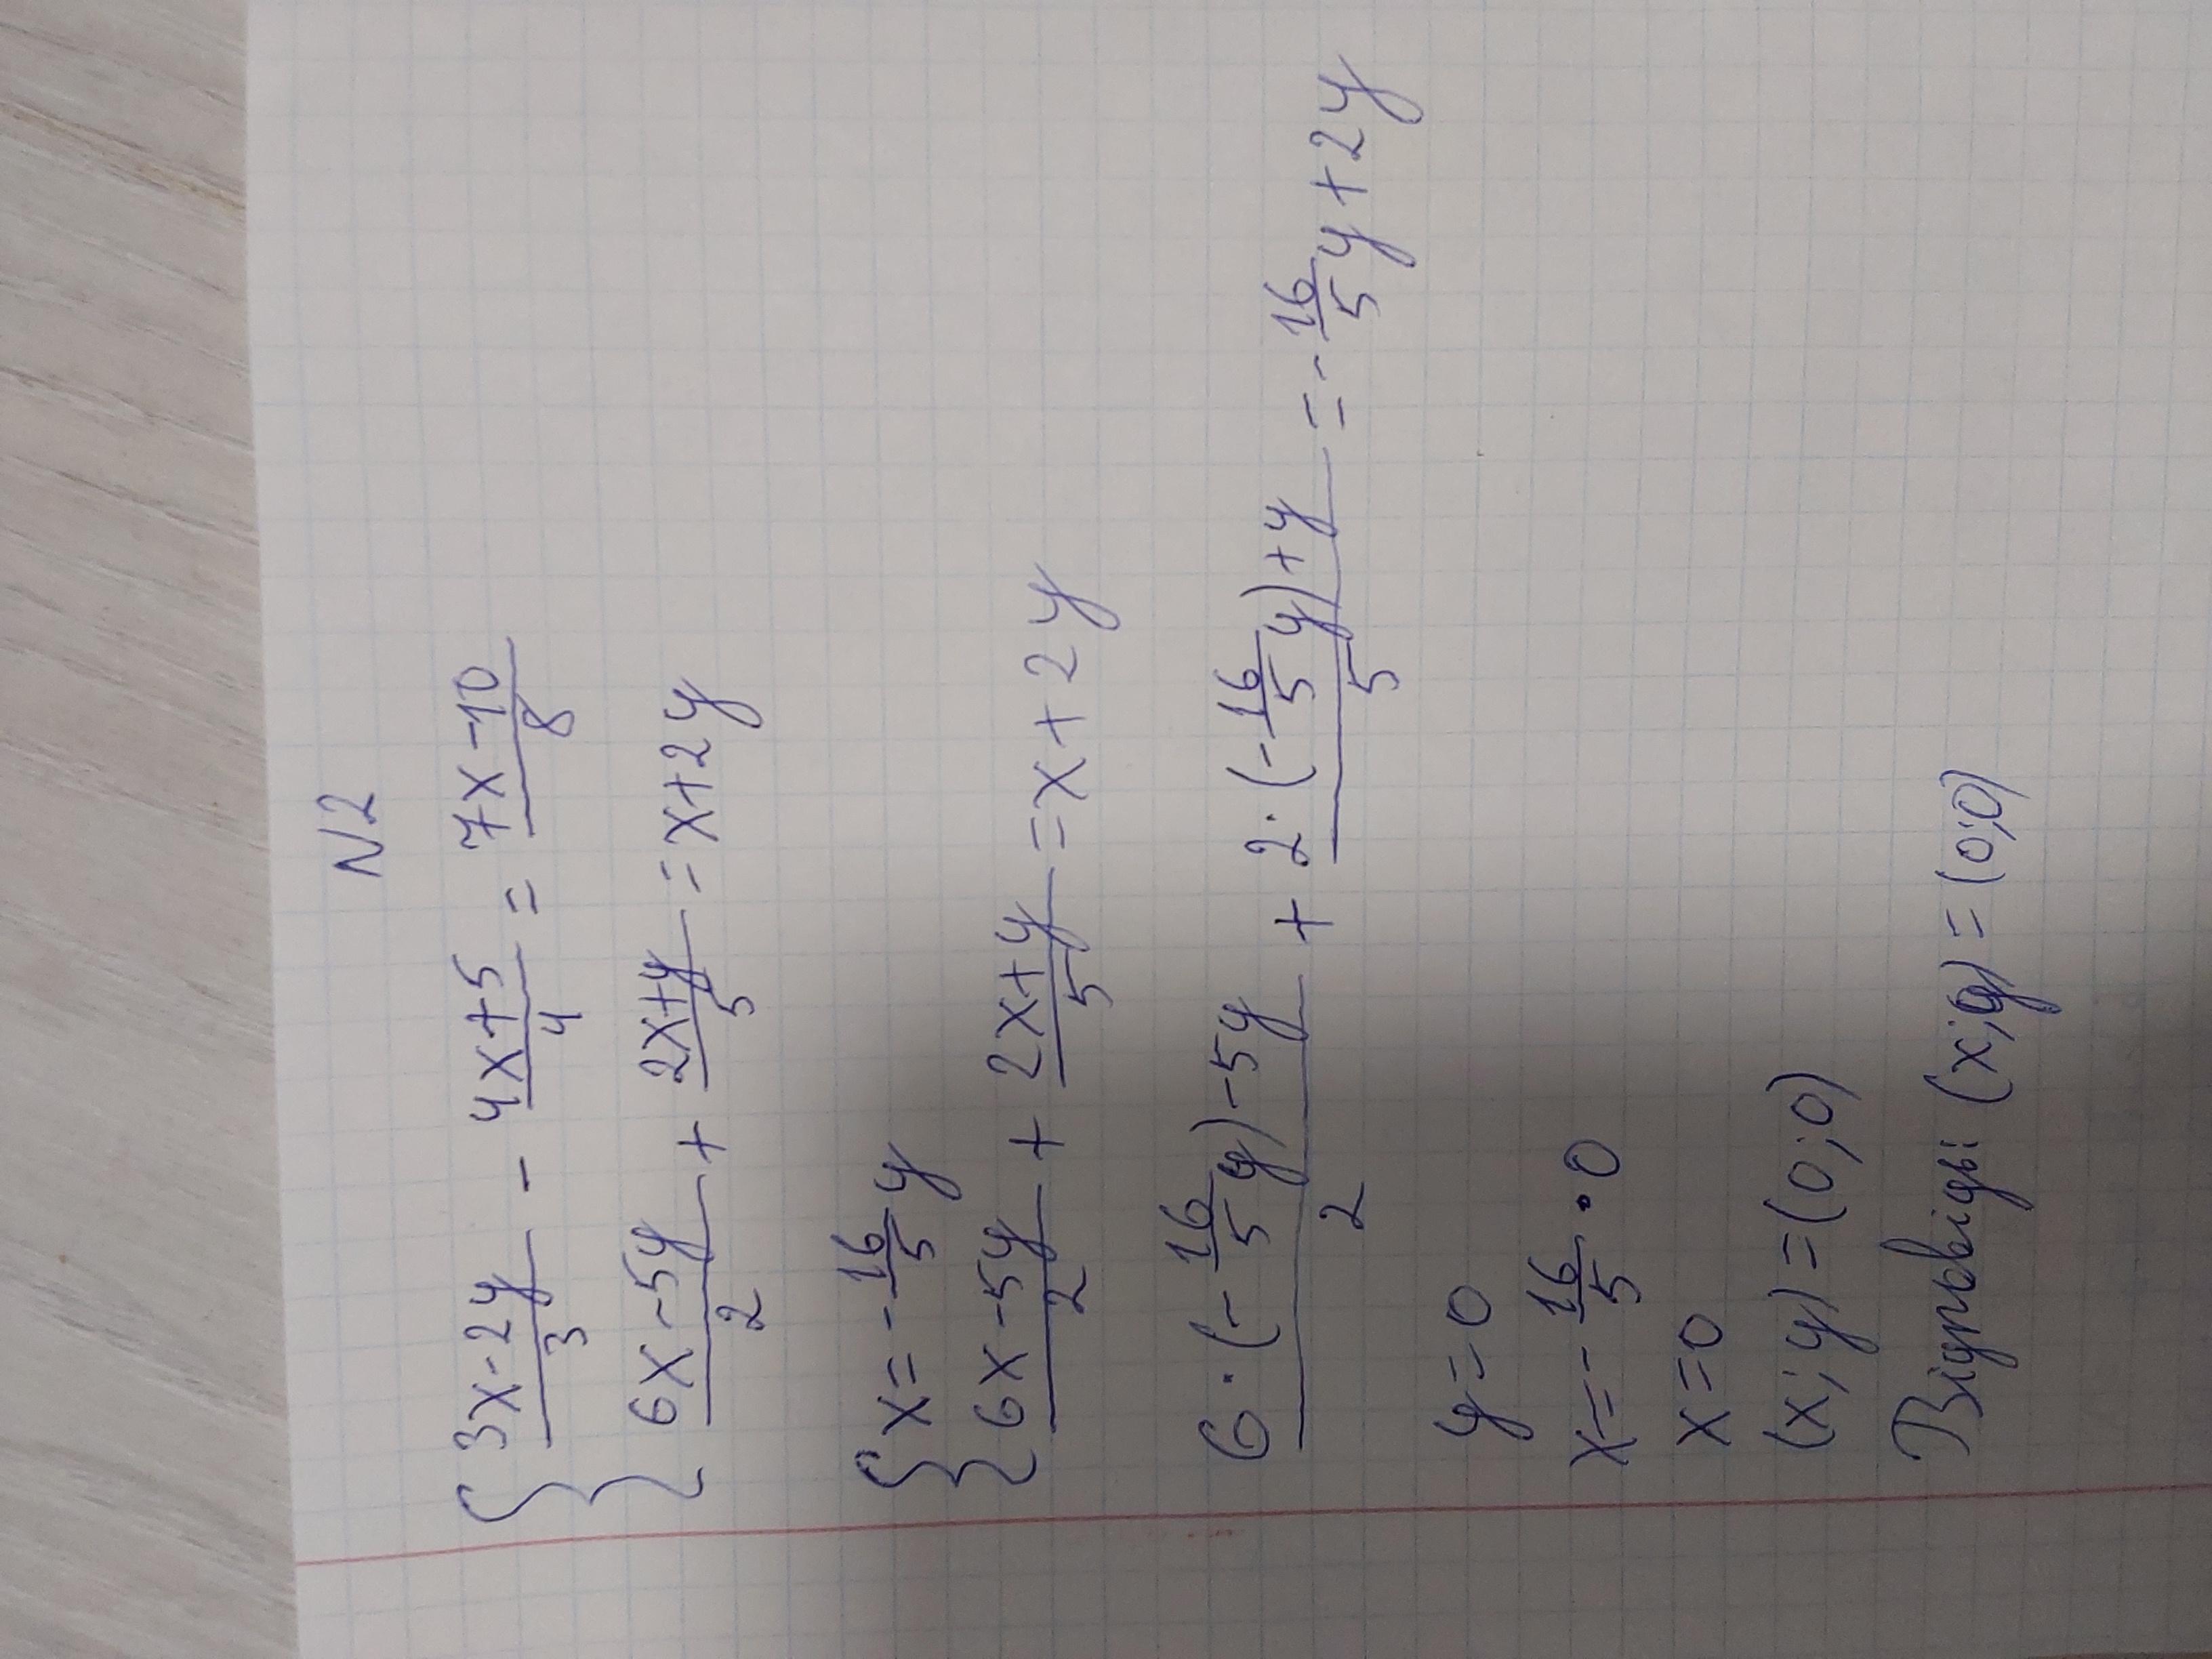 N2
{ (3x-2y)/3 - (4x+5)/4 = (7x-10)/8
(6x-5y)/2 + (2x+y)/5 = x+2y
{ x = -16/5 y
(6x-5y)/2 + (2x+y)/5 = x+2y
(6·(-16/5 y)-5y)/2 + (2·(-16/5 y)+y)/5 = -16/5 y+2y
y=0
x=-16/5·0
x=0
(x;y)=(0;0)
Відповідь: (x;y)=(0;0)